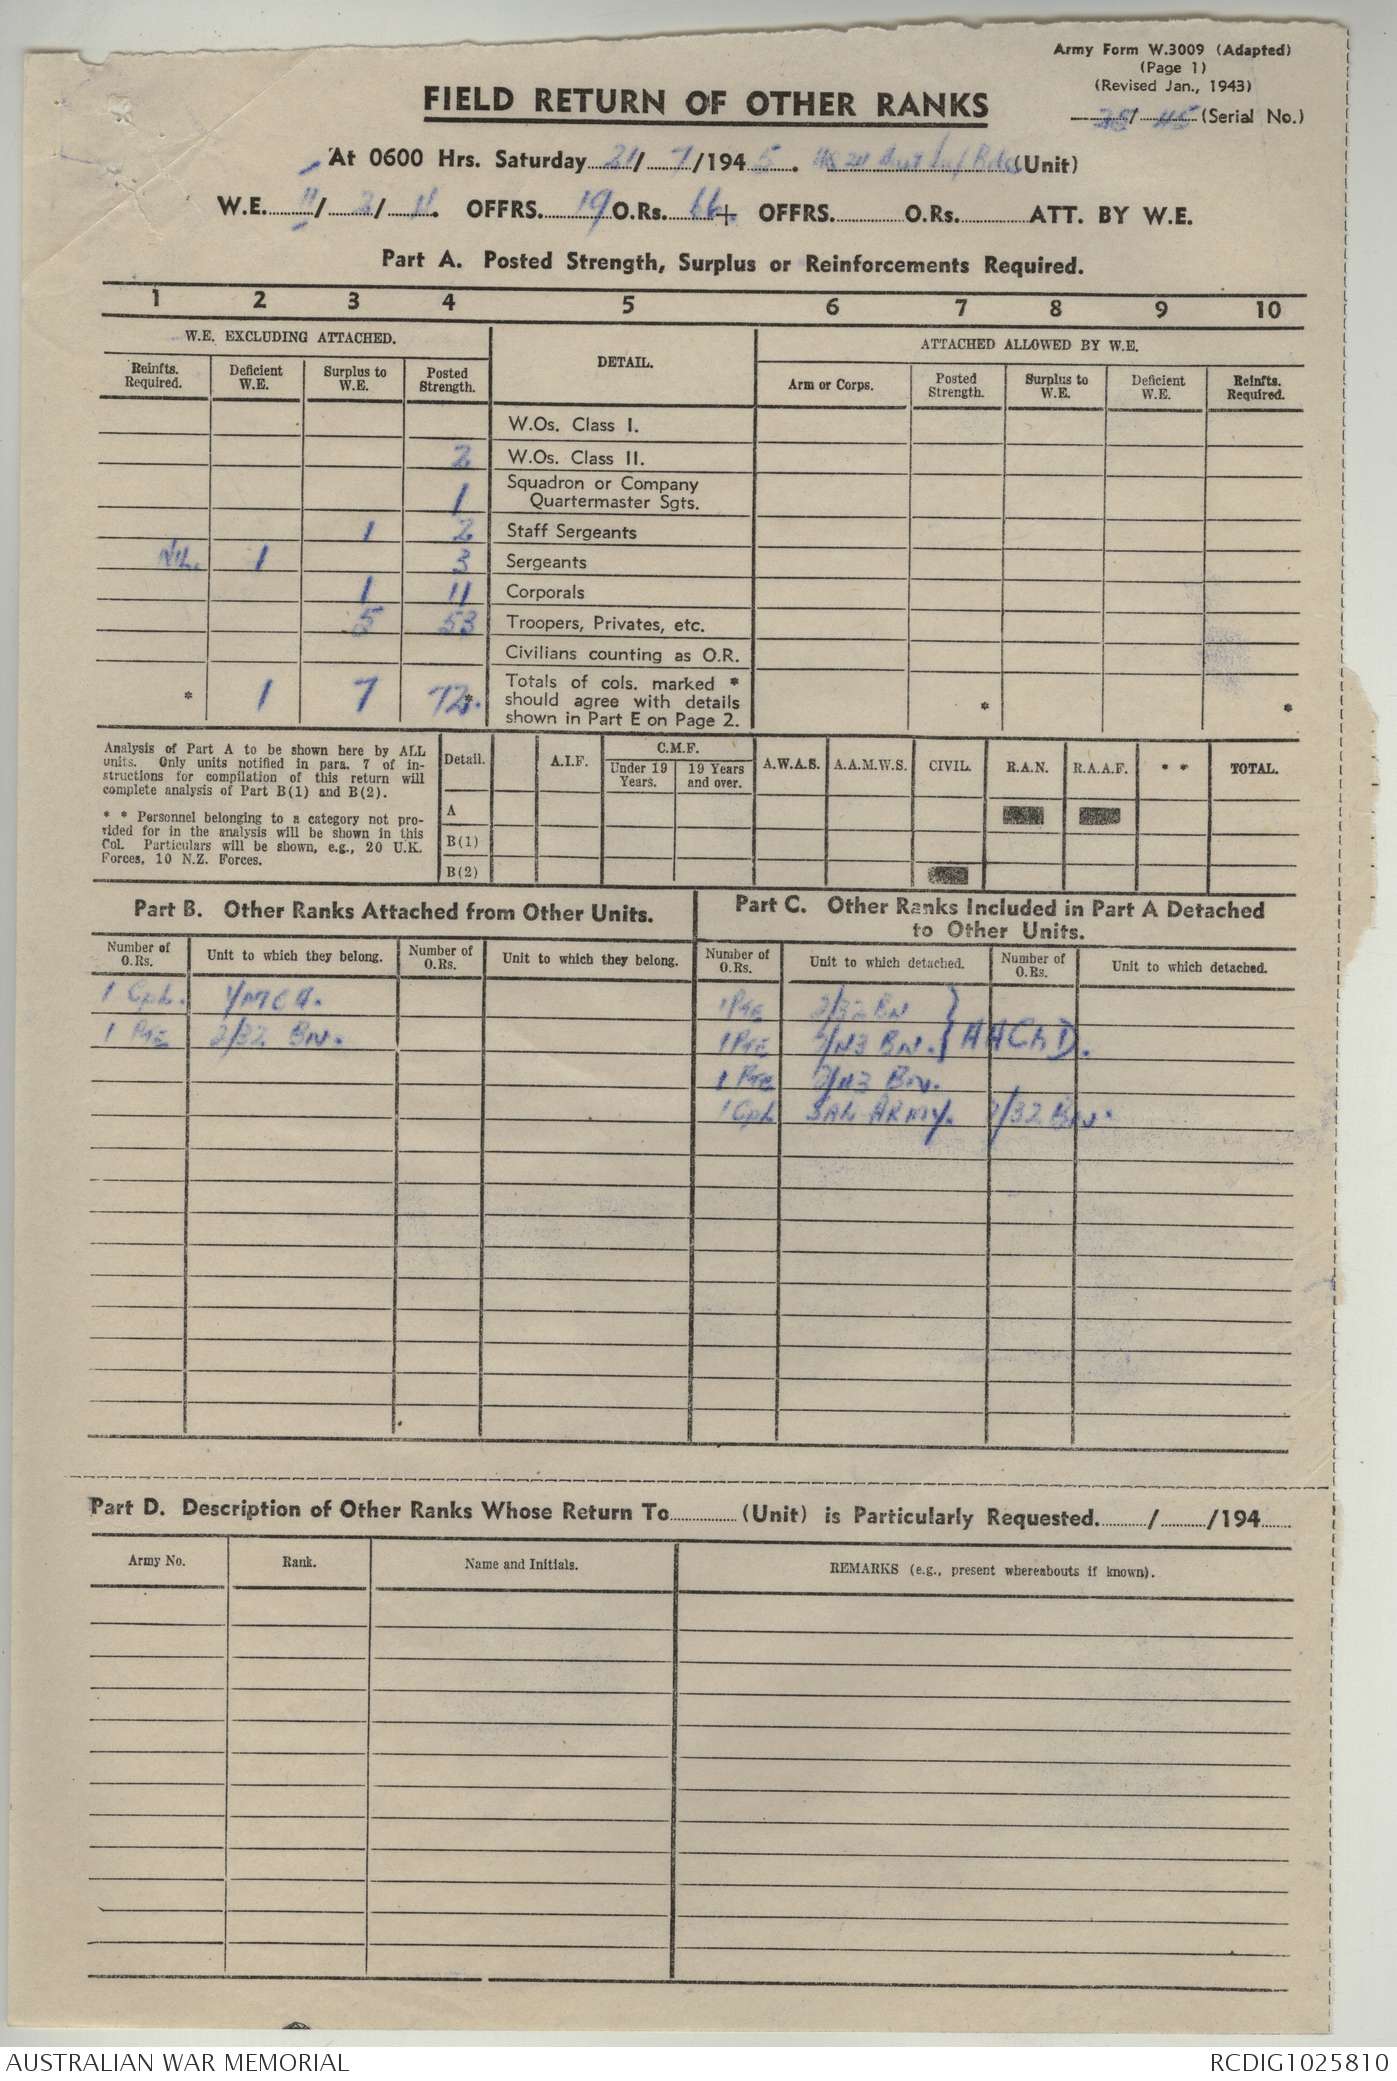 Army Form W.3009 (Adapted)
(Page 1)
(Revised Jan., 1943)
FIELD RETURN OF OTHER RANKS
28/45 (Serial No.)
At 0600 Hrs. Saturday 21/7/1945. HQ 24 Aust Inf Bde (Unit)
W.E. 11/2/11. OFFRS. 19 O.Rs. 66+ OFFRS. O.Rs. ATT. BY W.E.
Part A. Posted Strength, Surplus or Reinforcements Required.
1 2 3 4 5 6 7 8 9 10
W.E. EXCLUDING ATTACHED. DETAIL. ATTACHED ALLOWED BY W.E.
Reinfts. Required. Deficient W.E. Surplus to W.E. Posted Strength. Arm or Corps. Posted Strength. Surplus to W.E. Deficient W.E. Reinfts. Required.
W.Os. Class I.
2 W.Os. Class II.
1 Squadron or Company Quartermaster Sgts.
1 2 Staff Sergeants
NIL. 1 3 Sergeants
1 11 Corporals
5 53 Troopers, Privates, etc.
Civilians counting as O.R.
* 1 7 72* Totals of cols. marked * should agree with details shown in Part E on Page 2. * *
Analysis of Part A to be shown here by ALL
units. Only units notified in para. 7 of in-
structions for compilation of this return will
complete analysis of Part B(1) and B(2).
* * Personnel belonging to a category not pro-
vided for in the analysis will be shown in this
Col. Particulars will be shown, e.g., 20 U.K.
Forces, 10 N.Z. Forces.
Detail. A.I.F. C.M.F. Under 19 Years. 19 Years and over. A.W.A.S. A.A.M.W.S. CIVIL. R.A.N. R.A.A.F. * * TOTAL.
A
B(1)
B(2)
Part B. Other Ranks Attached from Other Units.
Number of O.Rs. Unit to which they belong. Number of O.Rs. Unit to which they belong.
1 Cpl. YMCA.
1 Pte 2/32 BN.
Part C. Other Ranks Included in Part A Detached
to Other Units.
Number of O.Rs. Unit to which detached. Number of O.Rs. Unit to which detached.
1 Pte 2/32 BN }
1 Pte 2/43 BN. } AACAD.
1 Pte 2/43 BN.
1 Cpl SAL ARMY. 2/32 BN.
Part D. Description of Other Ranks Whose Return To (Unit) is Particularly Requested. / /194
Army No. Rank. Name and Initials. REMARKS (e.g., present whereabouts if known).
AUSTRALIAN WAR MEMORIAL RCDIG1025810